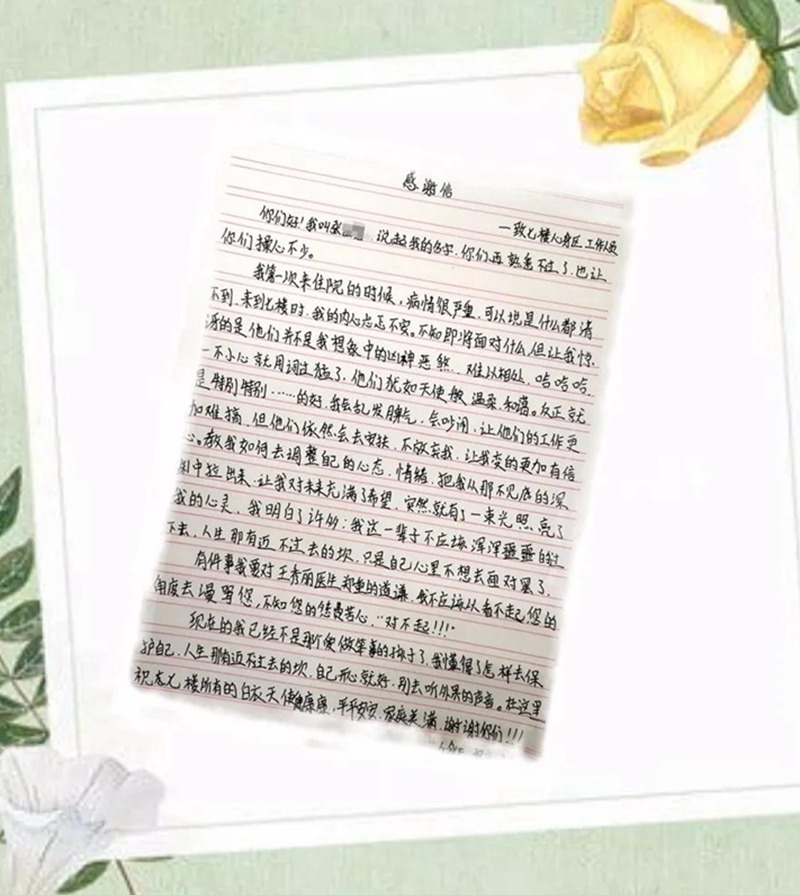 感谢信
一致乙楼心身区工作人员
你们好!我叫张 说起我的名字,你们再熟悉不过了,也让
你们操心不少。
我第一次来住院的时候,病情很严重,可以说是什么都清
不到,来到乙楼时,我的内心忐忑不安。不知即将面对什么,但让我惊
讶的是他们并不是我想象中的凶神恶煞,难以相处,哈哈哈,
一不小心就用词过猛了,他们犹如天使般温柔,和蔼。反正就
是特别特别……的好,我会乱发脾气,会吵闹,让他们的工作更
加难搞,但他们依然会去安抚,不放弃我,让我变的更加有信
心。教我如何去调整自己的心态,情绪,把我从那不见底的深
渊中拉出来,让我对未来充满了希望,突然就有了一束光照亮了
我的心灵,我明白了许多:我这一辈子不应该浑浑噩噩的过
下去,人生那有过不去的坎,只是自己心里不想去面对罢了。
有件事我要对王秀丽医生郑重的道谦,我不应该从看不起您的
角度去谩骂您,不知您的良苦心,"对不起!!!"
现在的我已经不是那个爱做笨事的孩子了,我懂得了怎样去保
护自己,人生那有过不去的坎,自己开心就好,别去听外界的声音。在这里
祝本乙楼所有的白衣天使健康,平平安安,家庭美满,谢谢你们!!!